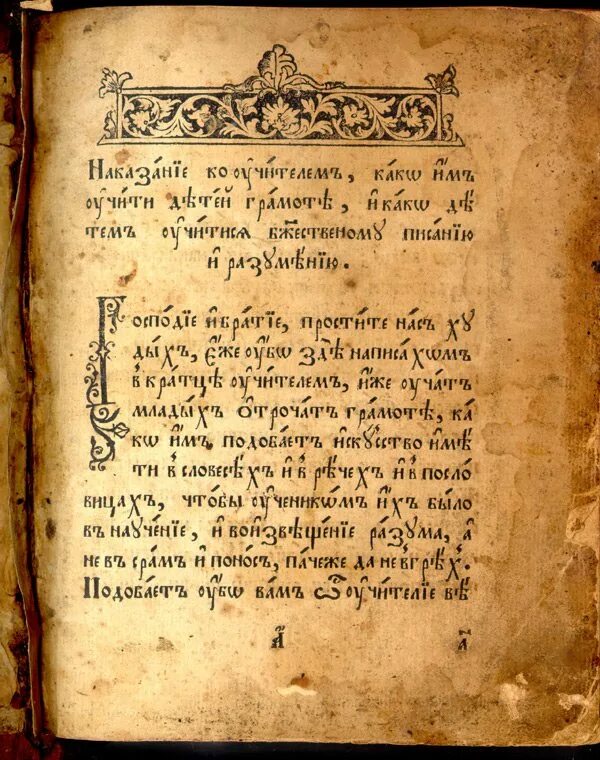 Наказа́нїе ко ᲂу҆чи́телемъ, ка́кѡ и҆̀мъ
ᲂу҆чи́ти дѣте́й гра́мотѣ, и҆ ка́кѡ дѣ́
темъ ᲂу҆чи́тисѧ бж҃е́ственому писа́нїю
и҆ разꙋмѣ́нїю.
Госпо́дїе и҆ бра́тїе, прости́те на́съ хꙋ
ды́хъ, є҆́же ᲂу҆́бѡ здѣ̀ написа́хѡмъ
в̾кра́тцѣ ᲂу҆чи́телемъ, и҆́же ᲂу҆ча́тъ
млады́хъ ѻ҆троча́тъ гра́мотѣ, ка́
кѡ и҆̀мъ подоба́етъ и҆скꙋ́ство и҆мѣ́
ти в̾ словесѣ́хъ и҆ в̾ рѣ́чехъ и҆ в̾ посло́
вицахъ, что́бы ᲂу҆ченикѡ́мъ и҆́хъ бы́ло
въ наꙋче́нїе, и҆ во и҆звѣще́нїе ра́зꙋма, а҆
не въ сра́мъ и҆ поно́съ, па́чеже да не в̾ грѣ́хъ.
Подоба́етъ ᲂу҆́бѡ ва́мъ ѽ ᲂу҆чи́телїе вѣ́
а҃